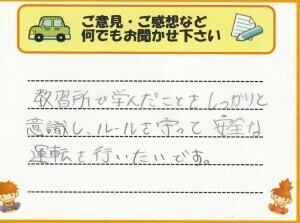 ご意見・ご感想など
何でもお聞かせ下さい
教習所で学んだことをしっかりと
意識し、ルールを守って安全な
運転を行いたいです。